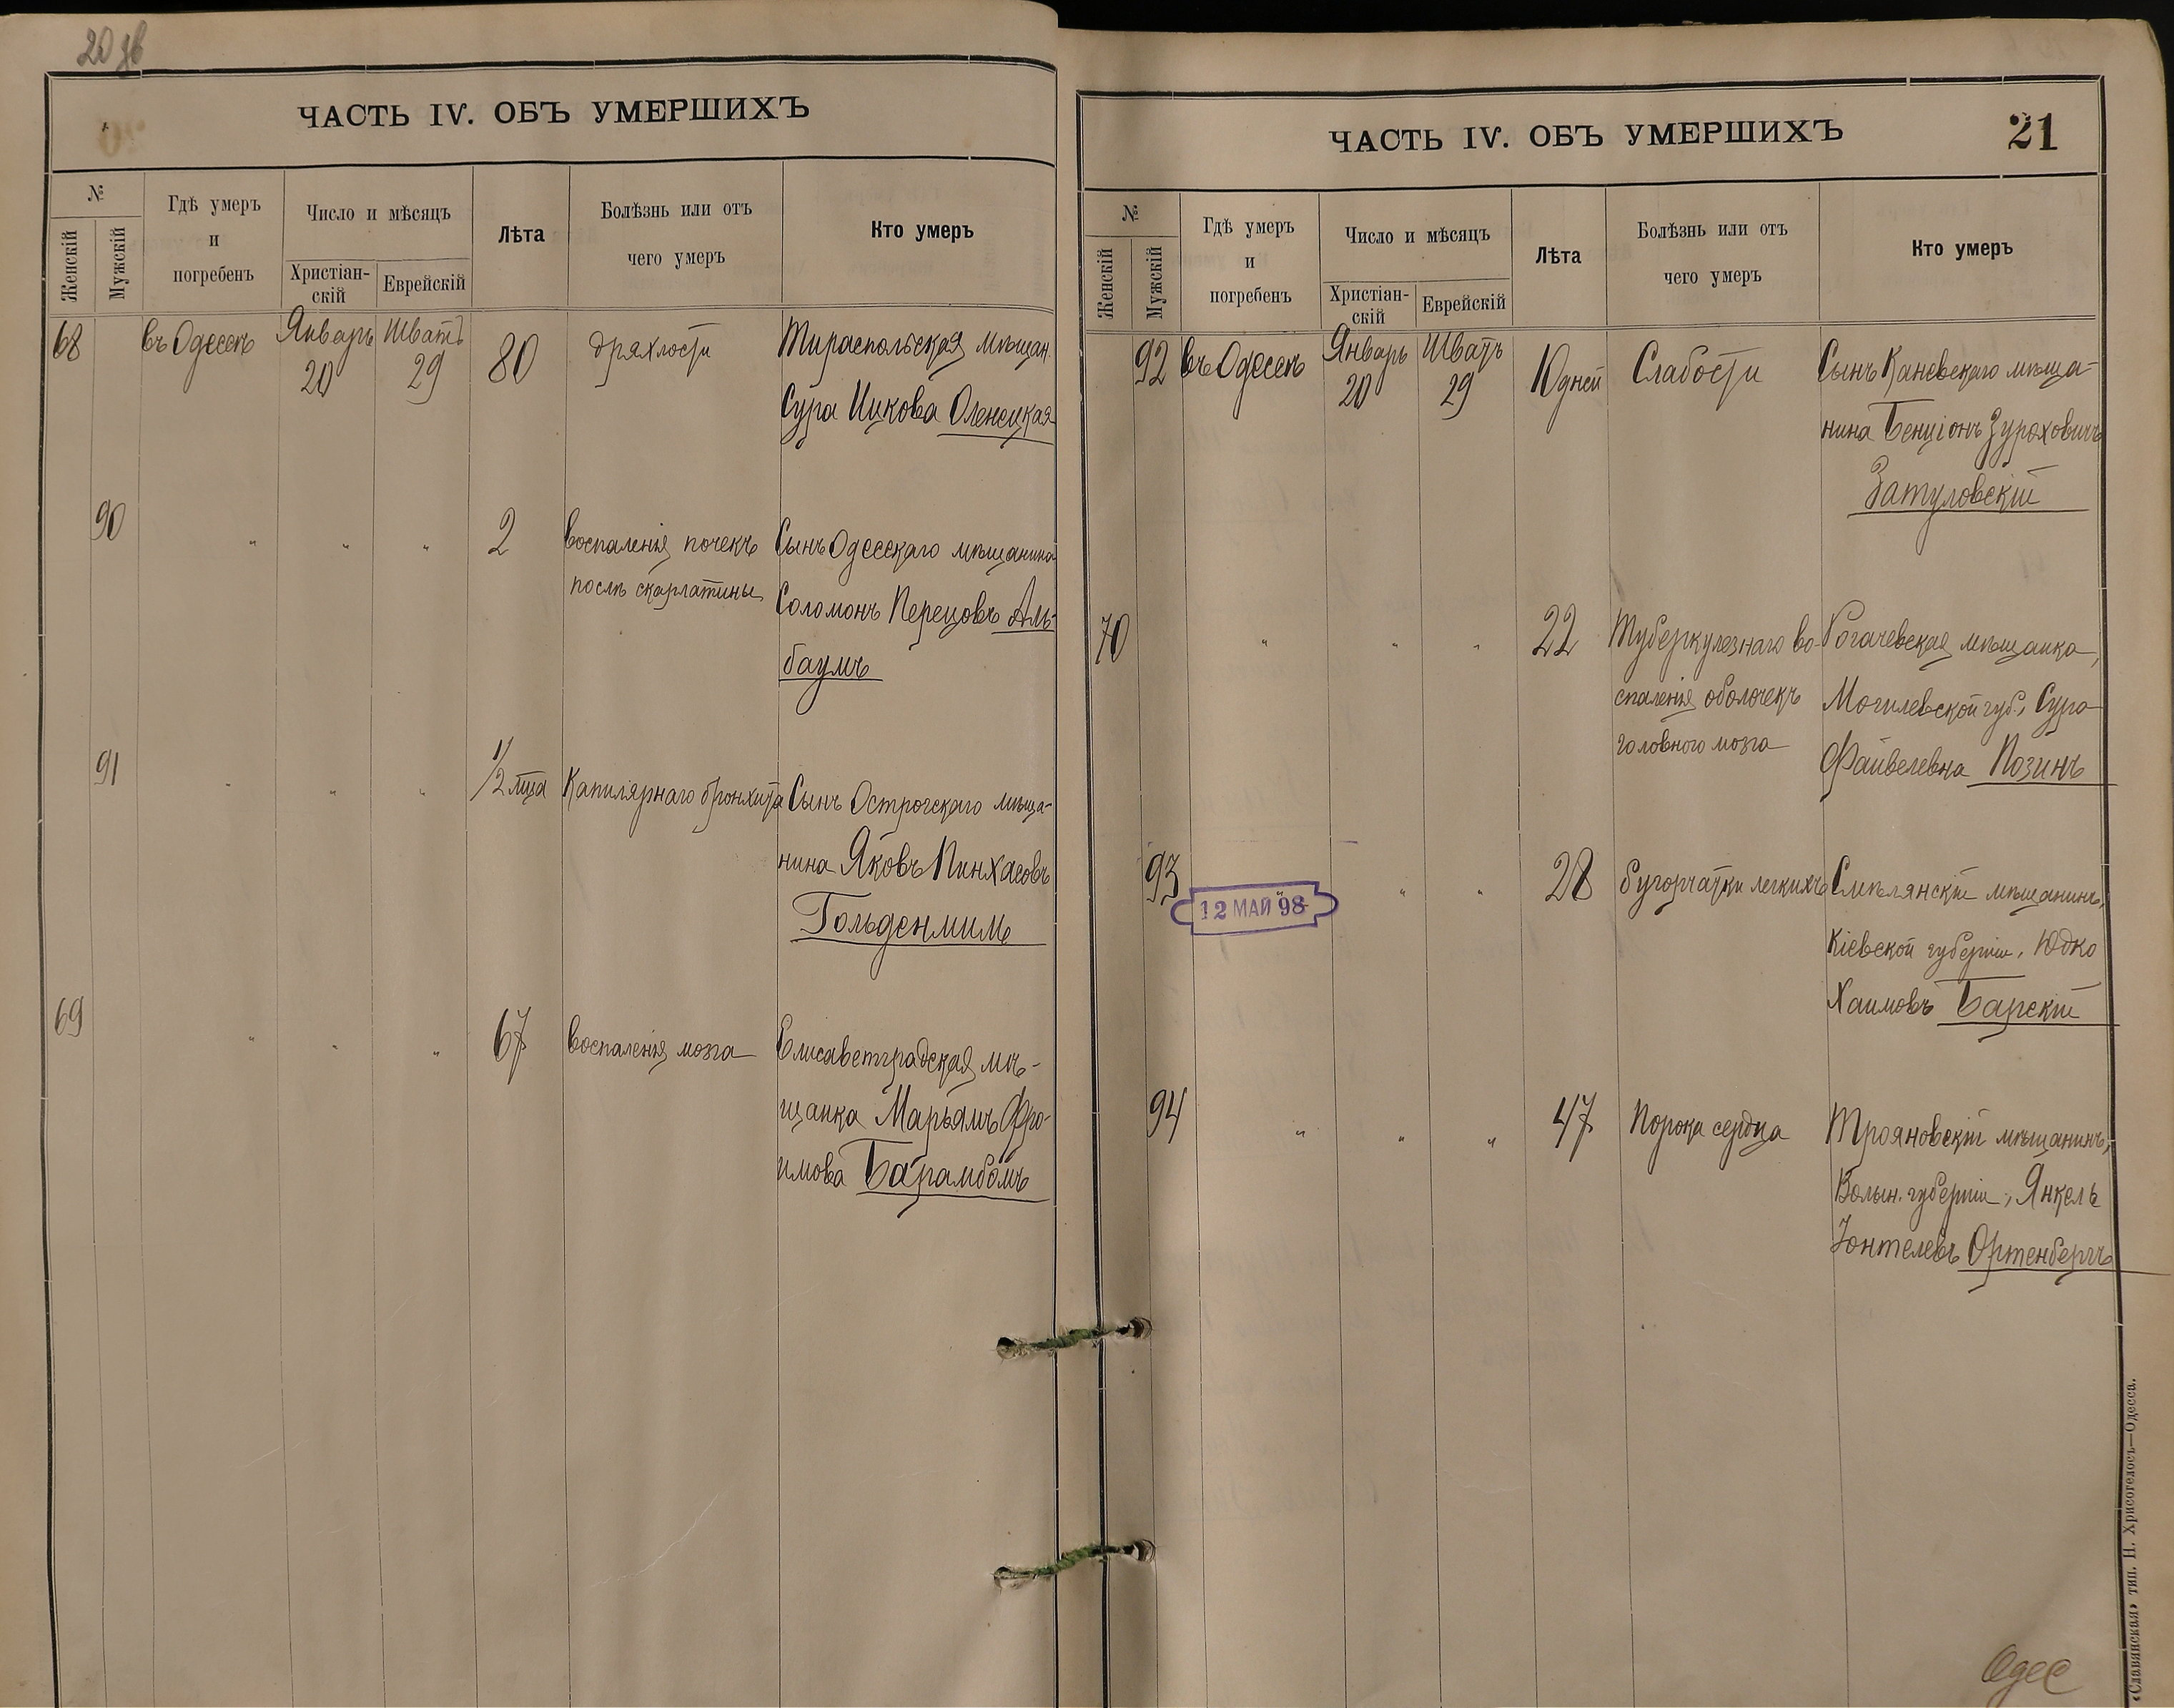 20 зв
ЧАСТЬ IV. ОБЪ УМЕРШИХЪ
№
Женскій
Мужскій
Гдѣ умеръ
и
погребенъ
Число и мѣсяцъ
Христіан-
скій
Еврейскій
Лѣта
Болѣзнь или отъ
чего умеръ
Кто умеръ
68 въ Одессѣ Январь 20 Шватъ 29 80 дряхлости Тираспольская мѣщан.
Сура Ицкова Оленецкая
90 " " " 2 воспаленія почекъ Сынъ Одесскаго мѣщанина
послѣ скарлатины Соломонъ Перецовъ Аль-
баумъ
91 " " " 1/2 мца Капилярнаго бронхита Сынъ Острогскаго мѣща-
нина Яковъ Пинхасовъ
Гольденмиль
69 " " " 67 воспаленія мозга Елисаветградская мѣ-
щанка Марьямъ Фро-
имова Барамбомъ
ЧАСТЬ IV. ОБЪ УМЕРШИХЪ
21
№
Женскій
Мужскій
Гдѣ умеръ
и
погребенъ
Число и мѣсяцъ
Христіан-
скій
Еврейскій
Лѣта
Болѣзнь или отъ
чего умеръ
Кто умеръ
92 въ Одессѣ Январь 20 Шватъ 29 10 дней Слабости Сынъ Каневскаго мѣща-
нина Бенціонъ Зураховичъ
Затуловскій
70 " " " 22 Туберкулезнаго во- Рогачевская мѣщанка,
спаленія оболочекъ Могилевской губ., Сура
головного мозга Файвелевна Позинъ
93 " " " 28 бугорчатки легкихъ Смѣлянскій мѣщанинъ,
12 МАЙ 98
Кіевской губерніи, Юдко
Хаимовъ Барскій
94 " " " 47 Порока сердца Трояновскій мѣщанинъ,
Волын. губерніи, Янкель
Іонтелевъ Ортенбергъ
Одес
«Славянская» тип. Н. Хрисогелосъ—Одесса.